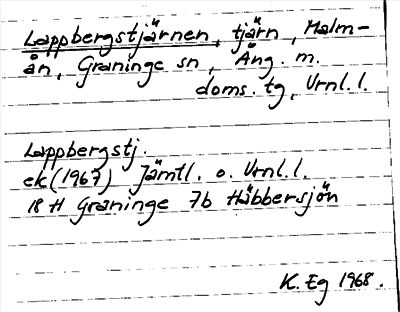 Lappbergstjärnen, tjärn, Malm-
ån, Graninge sn, Ång. m.
doms. tg, Vrnl. l.
Lappbergstj.
ek (1967) Jämtl. o. Vrnl. l.
18 H Graninge 7b Häbbersjön
K. Eg 1968.